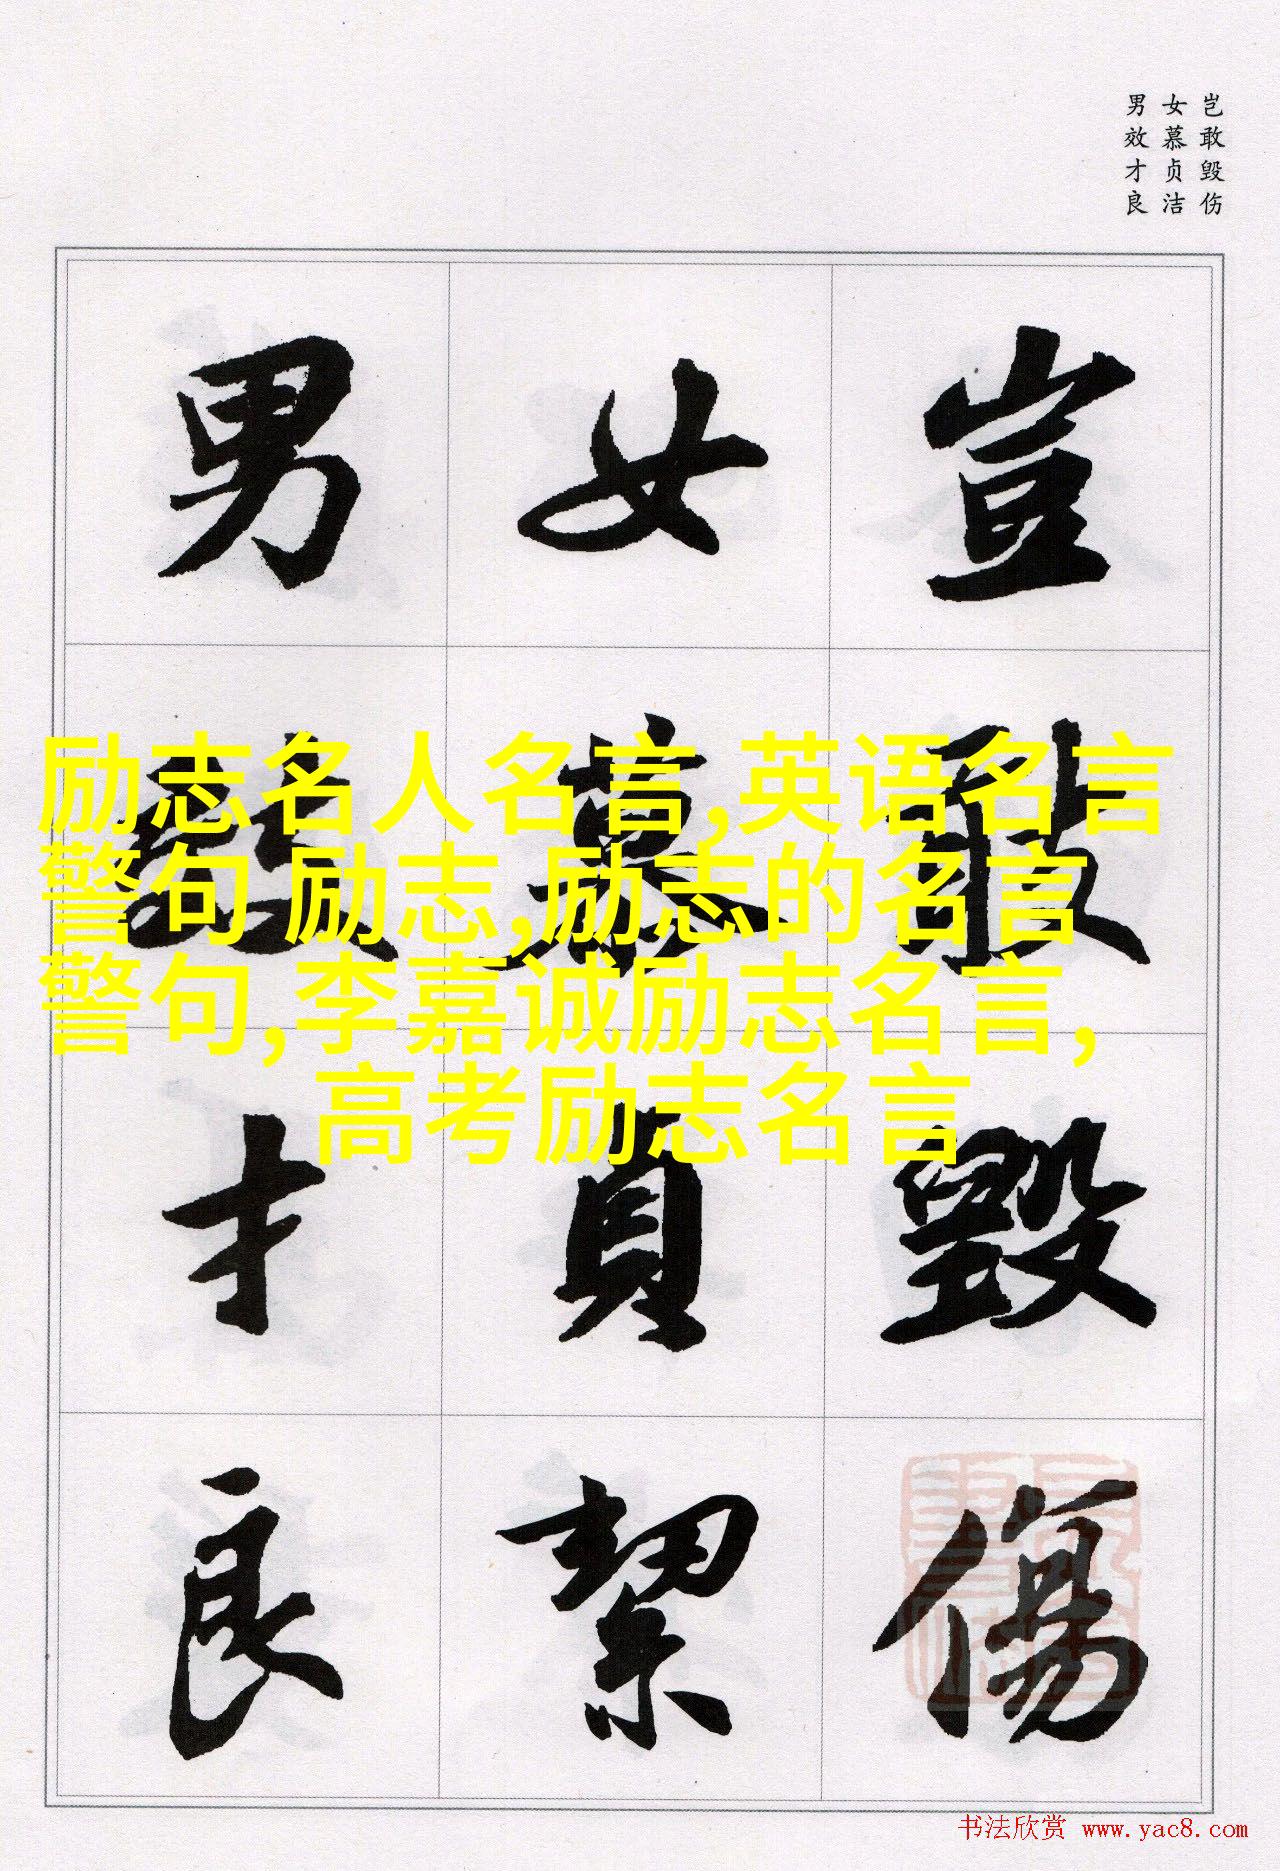 岂敢毁伤
女慕贞洁
男效才良
豈敢毀傷
女慕貞絜
男效才良
励志名人名言,英语名言
警句 励志,励志的名言
警句,李嘉诚励志名言,
高考励志名言
书法欣赏 www.yac8.com